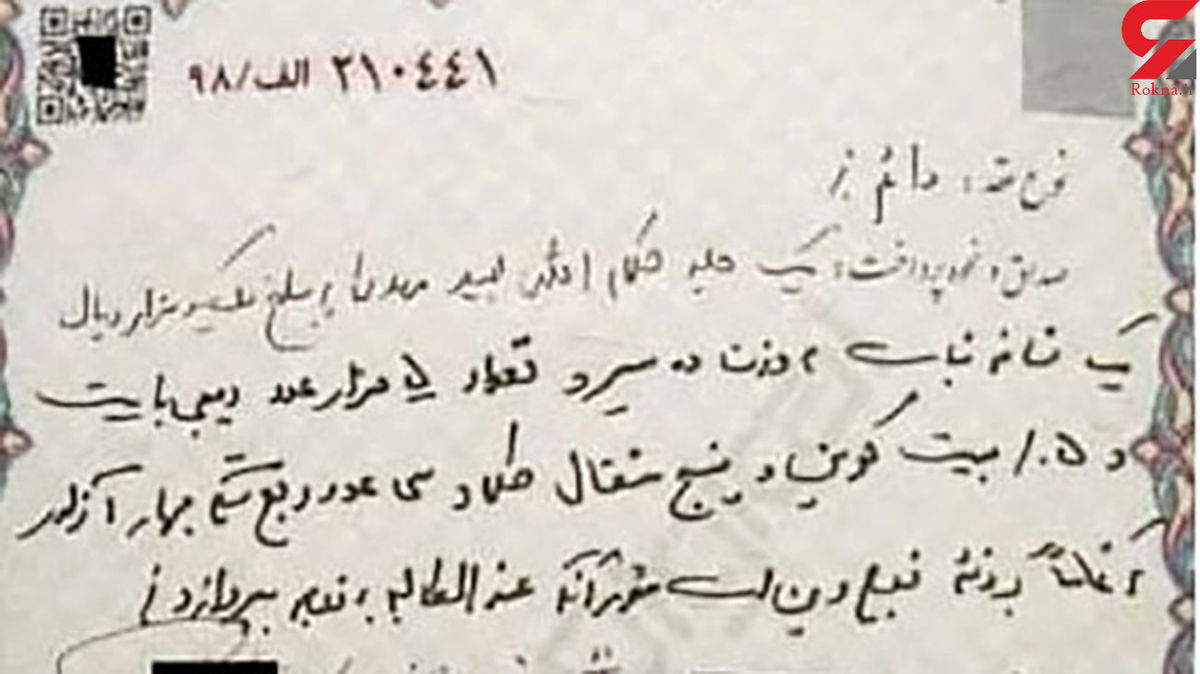 ۲۱۰۴۴۱ الف/۹۸
Rokna.ir
نوع عقد: دائم
صداق و نحوه پرداخت: یک جلد کلام الله مجید هدیه به مبلغ یکصد هزار ریال
یک شاخه نبات به وزن ده سیر و تعداد ۵ هزار عدد دیجی بایت
و ۰/۵ بیت کوین و پنج مثقال طلا و سی عدد ربع سکه بهار آزادی
که تماماً بر ذمه زوج دین است شوهر آنکه عندالمطالبه به زوجه بپردازد